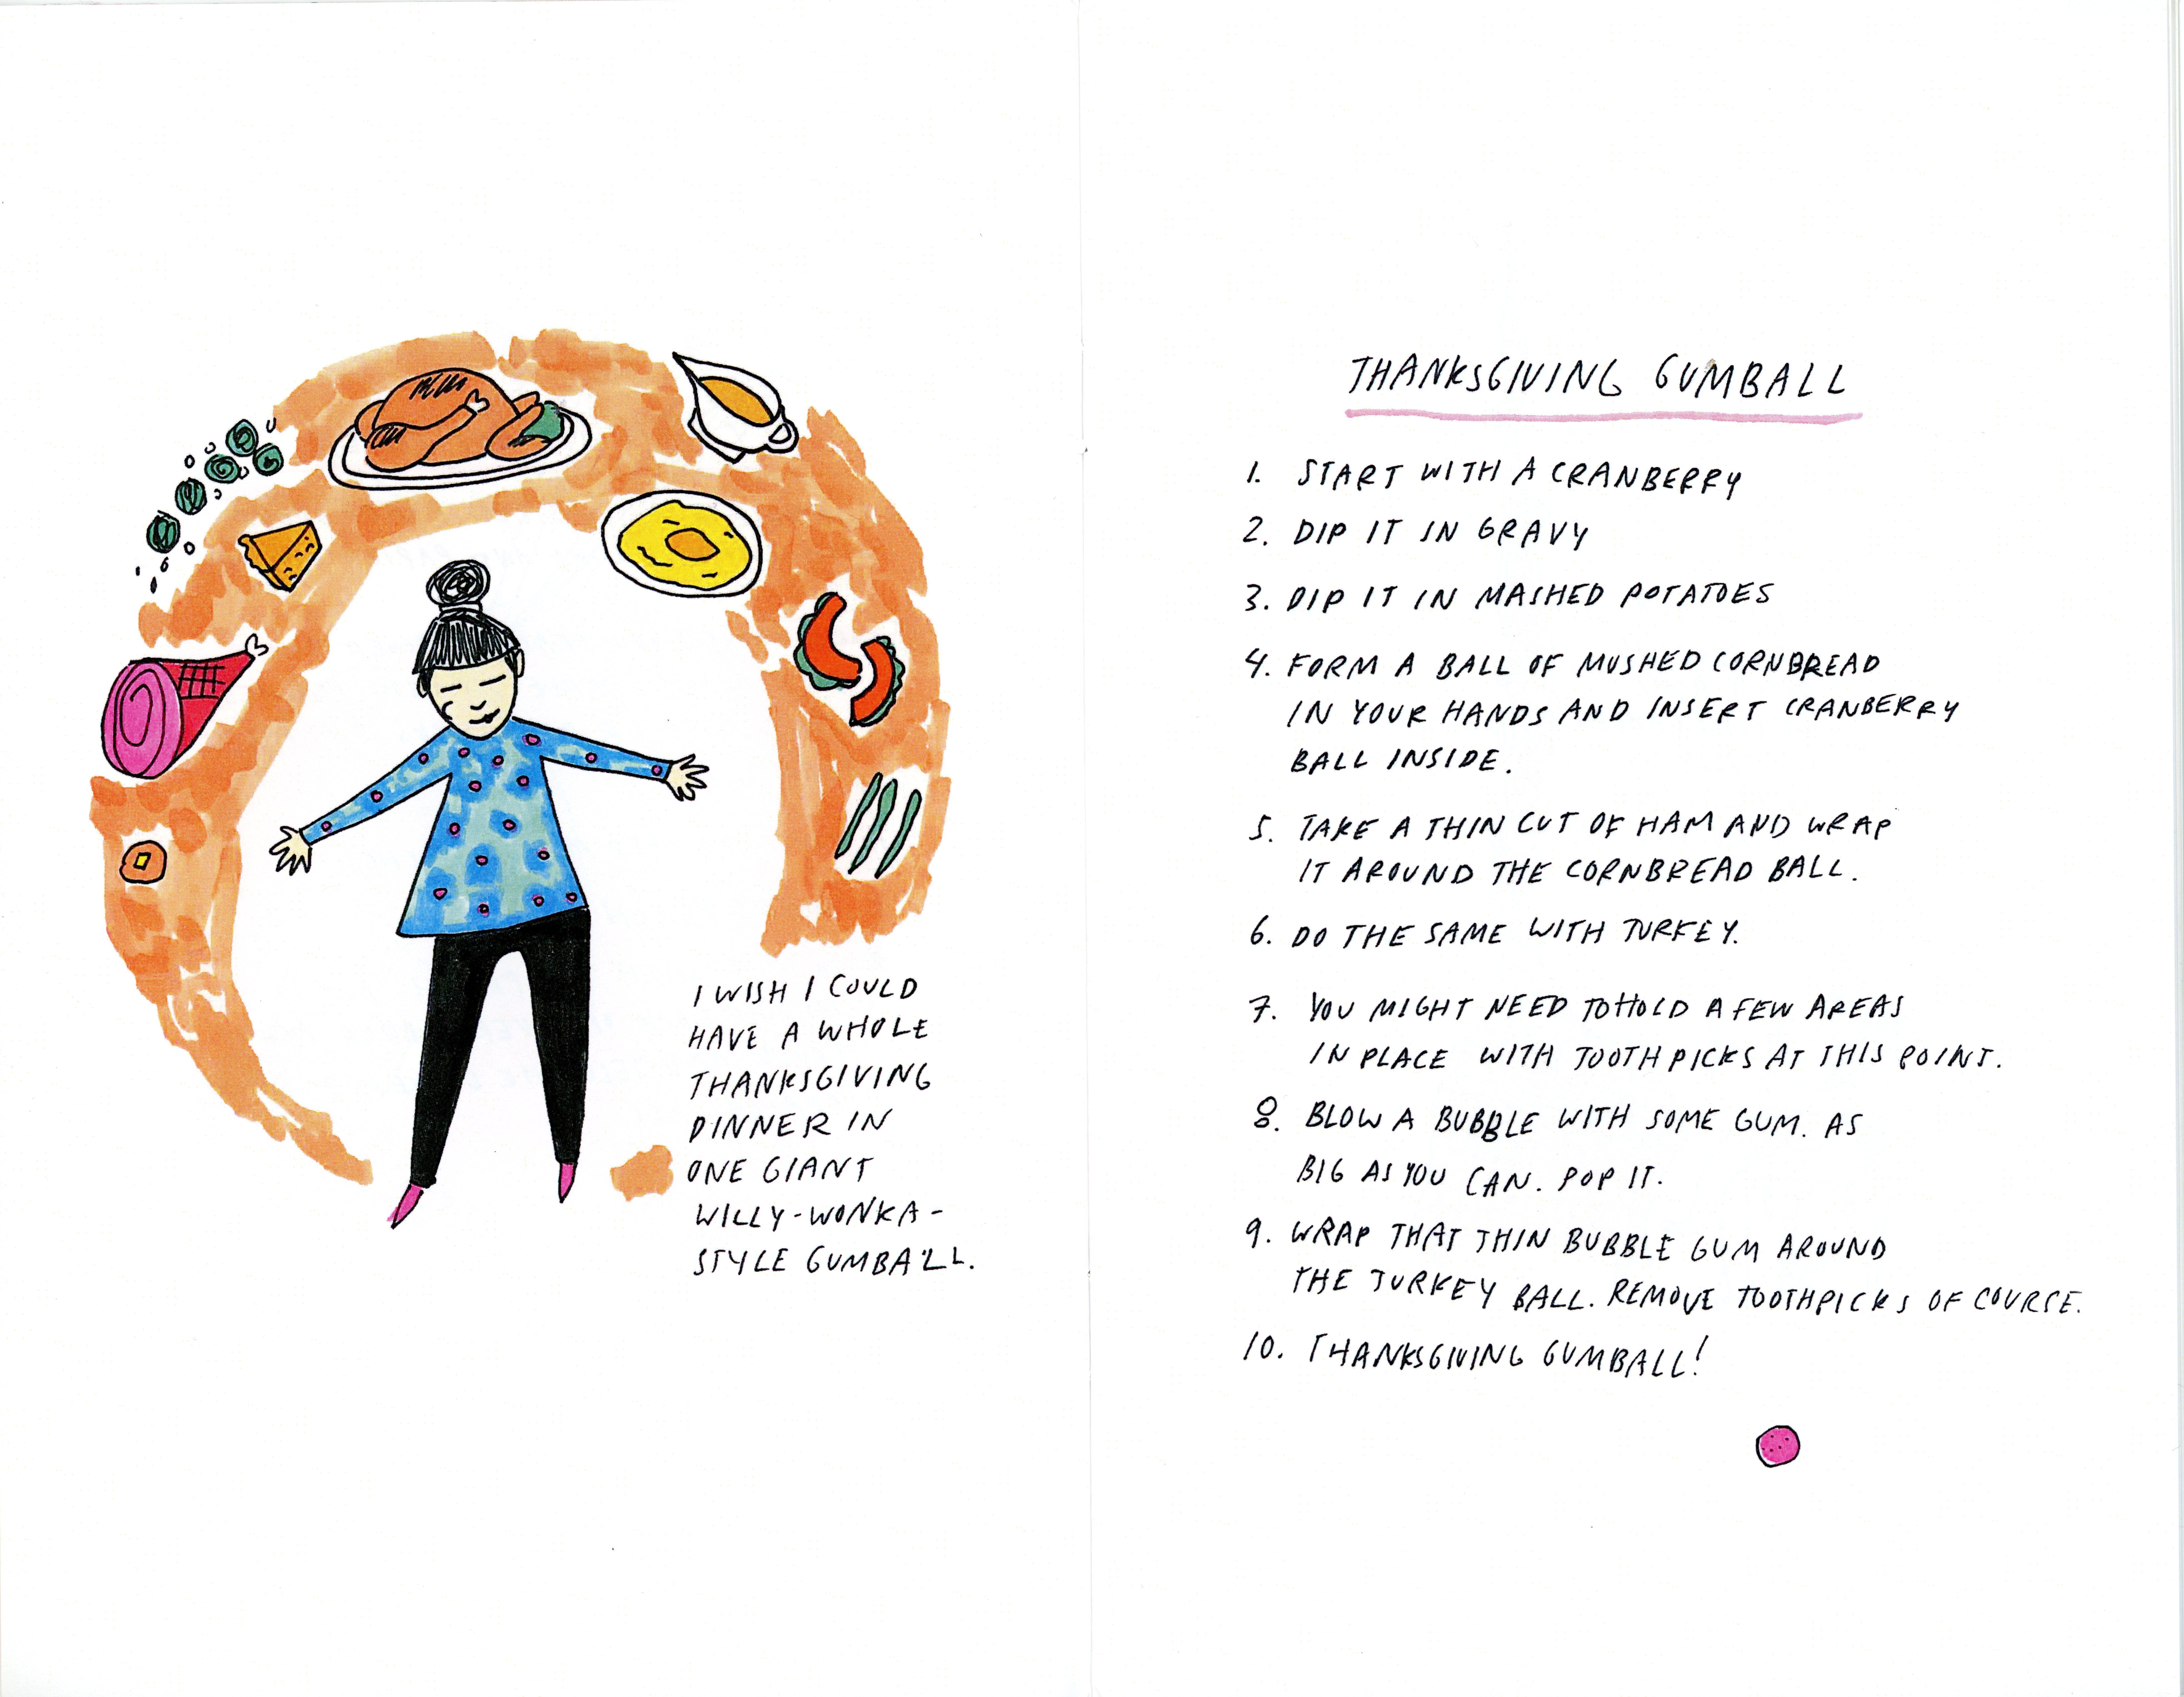 I WISH I COULD
HAVE A WHOLE
THANKSGIVING
DINNER IN
ONE GIANT
WILLY-WONKA-
STYLE GUMBALL.
THANKSGIVING GUMBALL
1. START WITH A CRANBERRY
2. DIP IT IN GRAVY
3. DIP IT IN MASHED POTATOES
4. FORM A BALL OF MUSHED CORNBREAD
IN YOUR HANDS AND INSERT CRANBERRY
BALL INSIDE.
5. TAKE A THIN CUT OF HAM AND WRAP
IT AROUND THE CORNBREAD BALL.
6. DO THE SAME WITH TURKEY.
7. YOU MIGHT NEED TO HOLD A FEW AREAS
IN PLACE WITH TOOTHPICKS AT THIS POINT.
8. BLOW A BUBBLE WITH SOME GUM. AS
BIG AS YOU CAN. POP IT.
9. WRAP THAT THIN BUBBLE GUM AROUND
THE TURKEY BALL. REMOVE TOOTHPICKS OF COURSE.
10. THANKSGIVING GUMBALL!